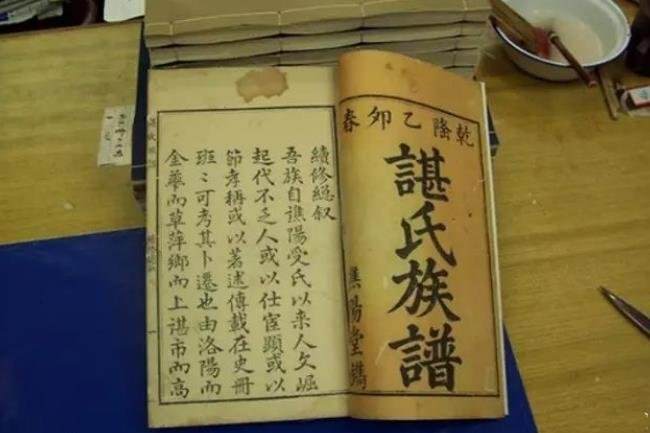 乾隆乙卯春
諶氏族譜
譙陽堂鐫
續修總叙
吾族自譙陽受氏以來人文崛
起代不乏人或以仕宦顯或以
節孝稱或以著述傳載在史冊
班〻可考其卜遷也由洛陽而
金華而草萍鄉而上諶市而高